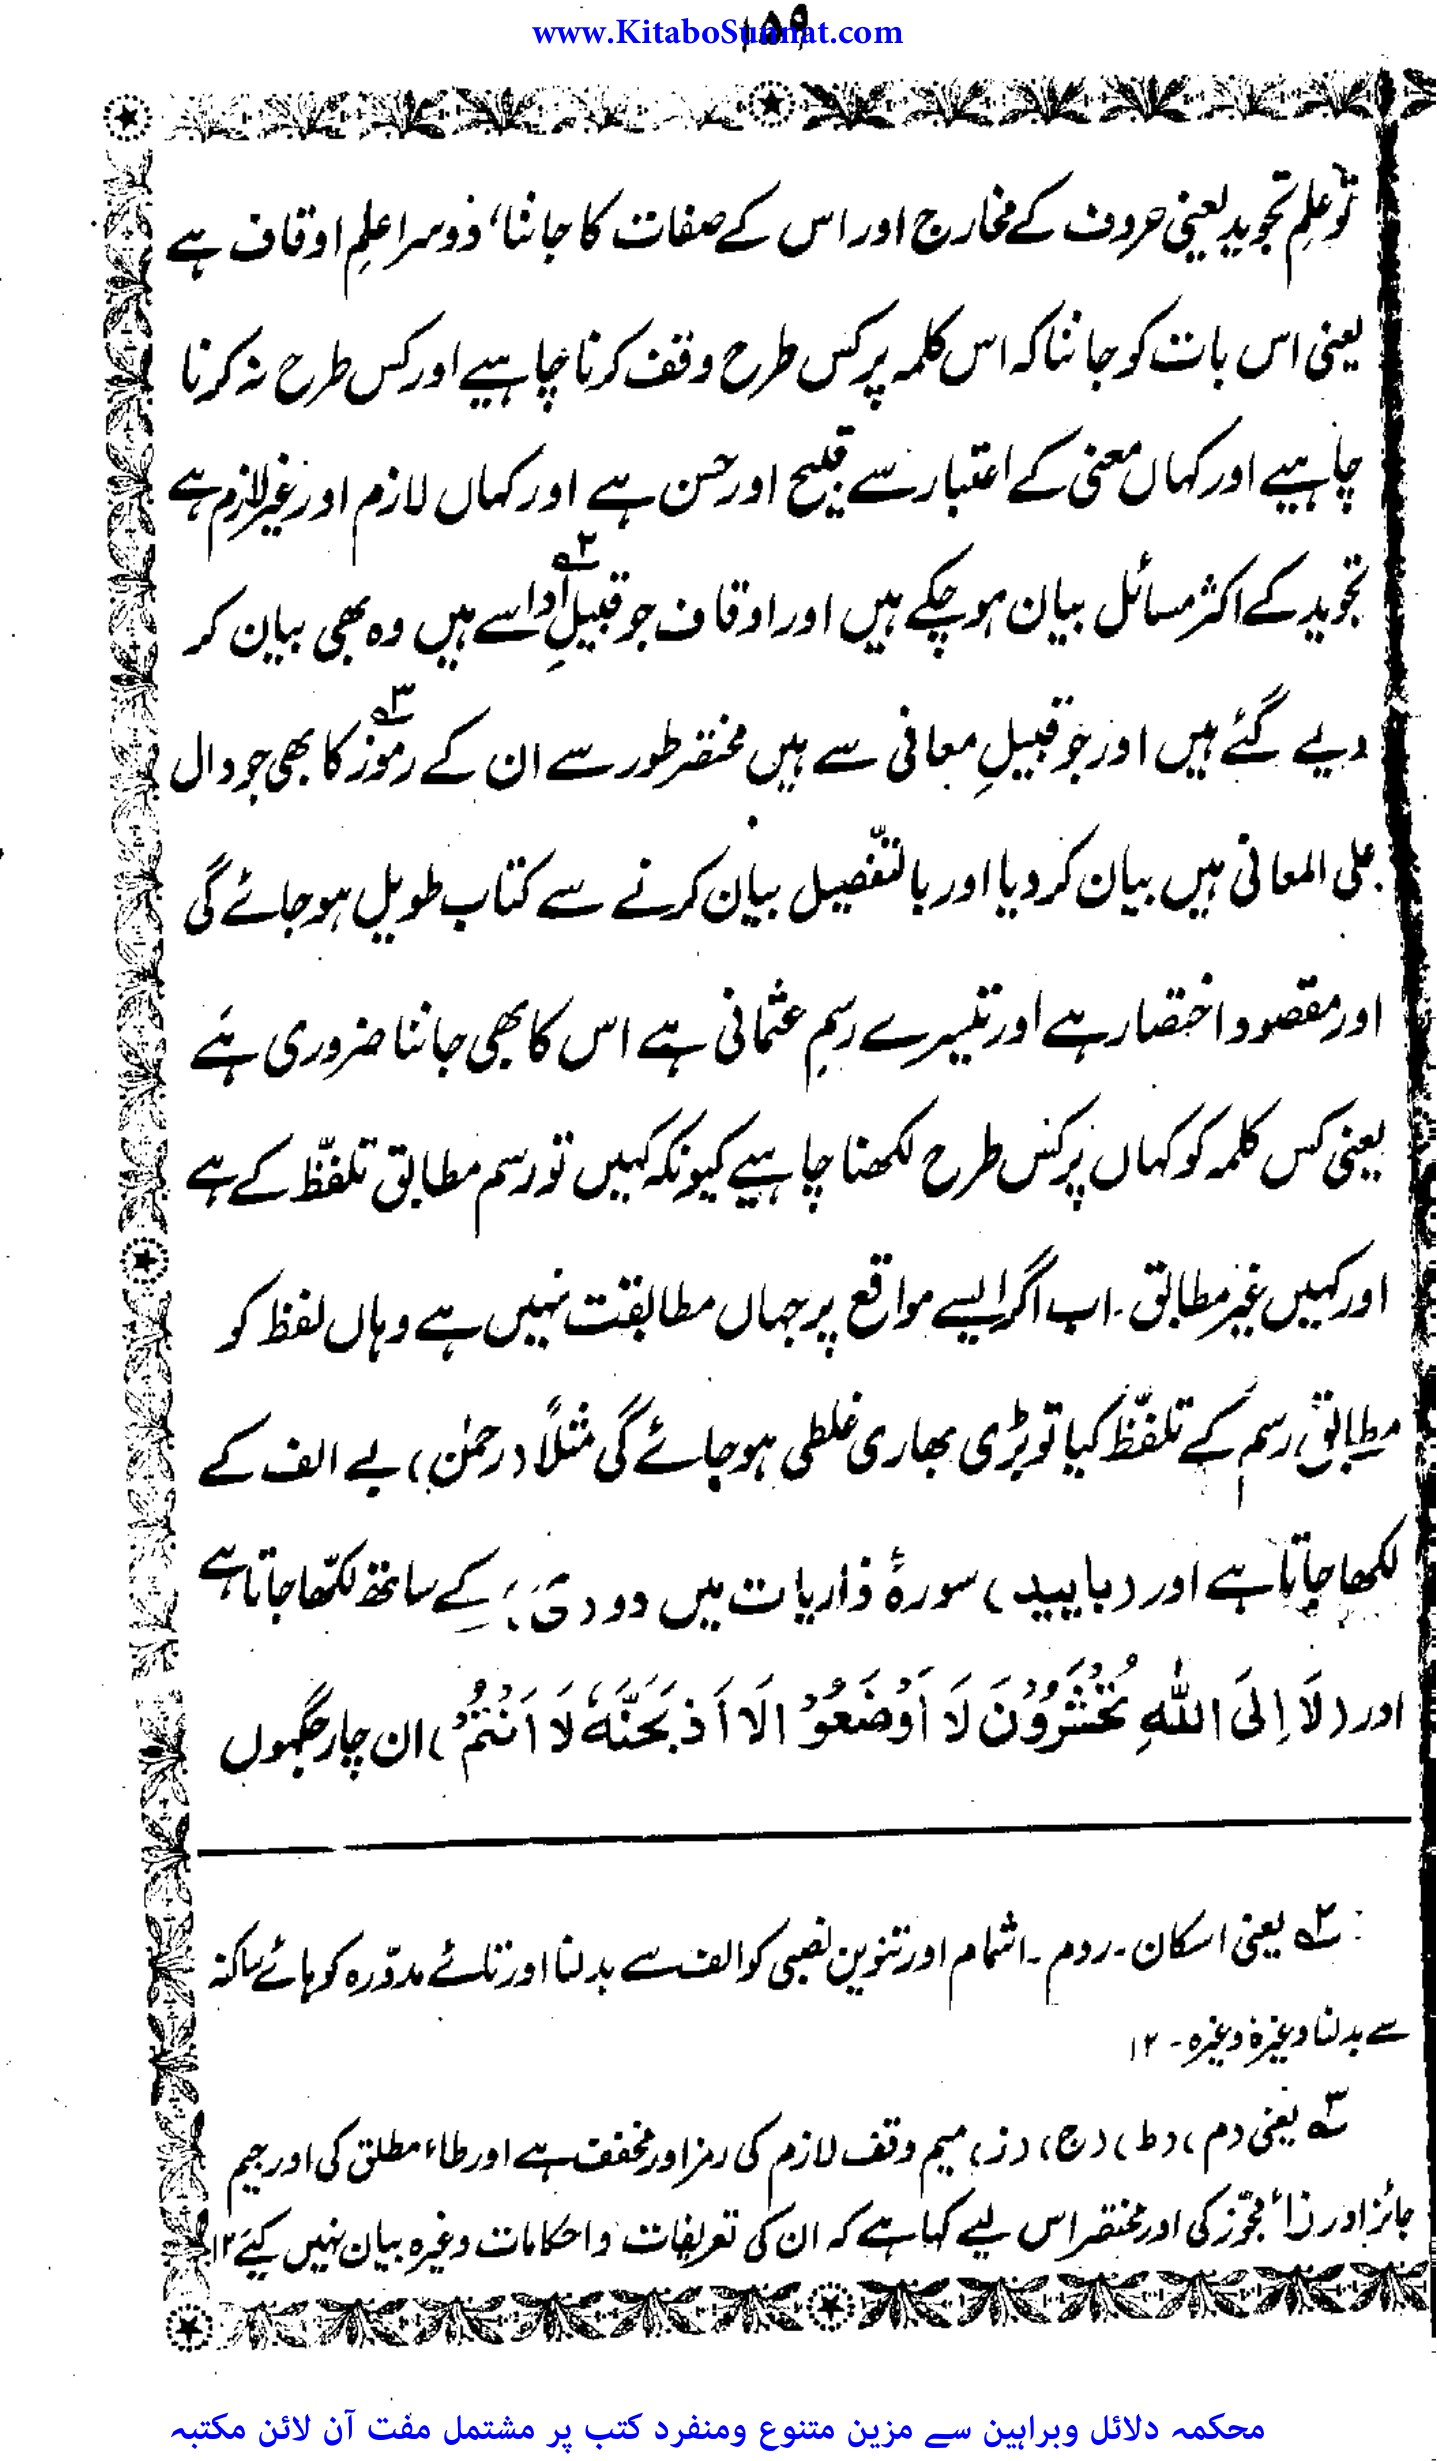 ۱۵۹
www.KitaboSunnat.com
تو علمِ تجوید یعنی حروف کے مخارج اور اس کے صفات کا جاننا، دوسرا علمِ اوقاف ہے
یعنی اس بات کو جاننا کہ اس کلمہ پر کس طرح وقف کرنا چاہیے اور کس طرح نہ کرنا
چاہیے اور کہاں معنی کے اعتبار سے قبیح اور حسن ہے اور کہاں لازم اور غیر لازم ہے
تجوید کے اکثر مسائل بیان ہو چکے ہیں اور اوقاف جو قبیلِ ادا سے ہیں ۲؎ وہ بھی بیان کر
دیے گئے ہیں اور جو قبیلِ معانی سے ہیں مختصر طور سے ان کے رموز ۳؎ کا بھی جو دال
علی المعانی ہیں بیان کر دیا اور بالتّفصیل بیان کرنے سے کتاب طویل ہو جائے گی
اور مقصود اختصار ہے اور تیسرے رسمِ عثمانی ہے اس کا بھی جاننا ضروری ہے
یعنی کس کلمہ کو کہاں پر کس طرح لکھنا چاہیے کیونکہ کہیں تو رسم مطابق تلفّظ کے ہے
اور کہیں غیر مطابق۔ اب اگر ایسے مواقع پر جہاں مطابقت نہیں ہے وہاں لفظ کو
مطابق رسم کے تلفّظ کیا تو بڑی بھاری غلطی ہو جائے گی مثلاً (رحمٰن) بے الف کے
لکھا جاتا ہے اور (باییید) سورۂ ذاریات میں دو (ی) کے ساتھ لکھا جاتا ہے
اور (لَا اِلَی اللّٰہِ تُحْشَرُوْنَ لَا اَوْضَعُوْا لَا اَذْبَحَنَّہٗ لَا اَنْتُمْ) ان چار جگہوں
۲؎ یعنی اسکان۔ روم۔ اشمام اور تنوین نصبی کو الف سے بدلنا اور تائے مدوّرہ کو ہائے ساکنہ
سے بدلنا وغیرہ وغیرہ۔ ۱۲
۳؎ یعنی (م) (ط) (ج) (ز) میم وقف لازم کی رمز اور مخفف ہے اور طاء مطلق کی اور جیم
جائز اور زاء مجوّز کی اور مختصر اس لیے کہا ہے کہ ان کی تعریفات و احکامات وغیرہ بیان نہیں کیے ۱۲
محکمہ دلائل وبراہین سے مزین متنوع ومنفرد کتب پر مشتمل مفت آن لائن مکتبہ